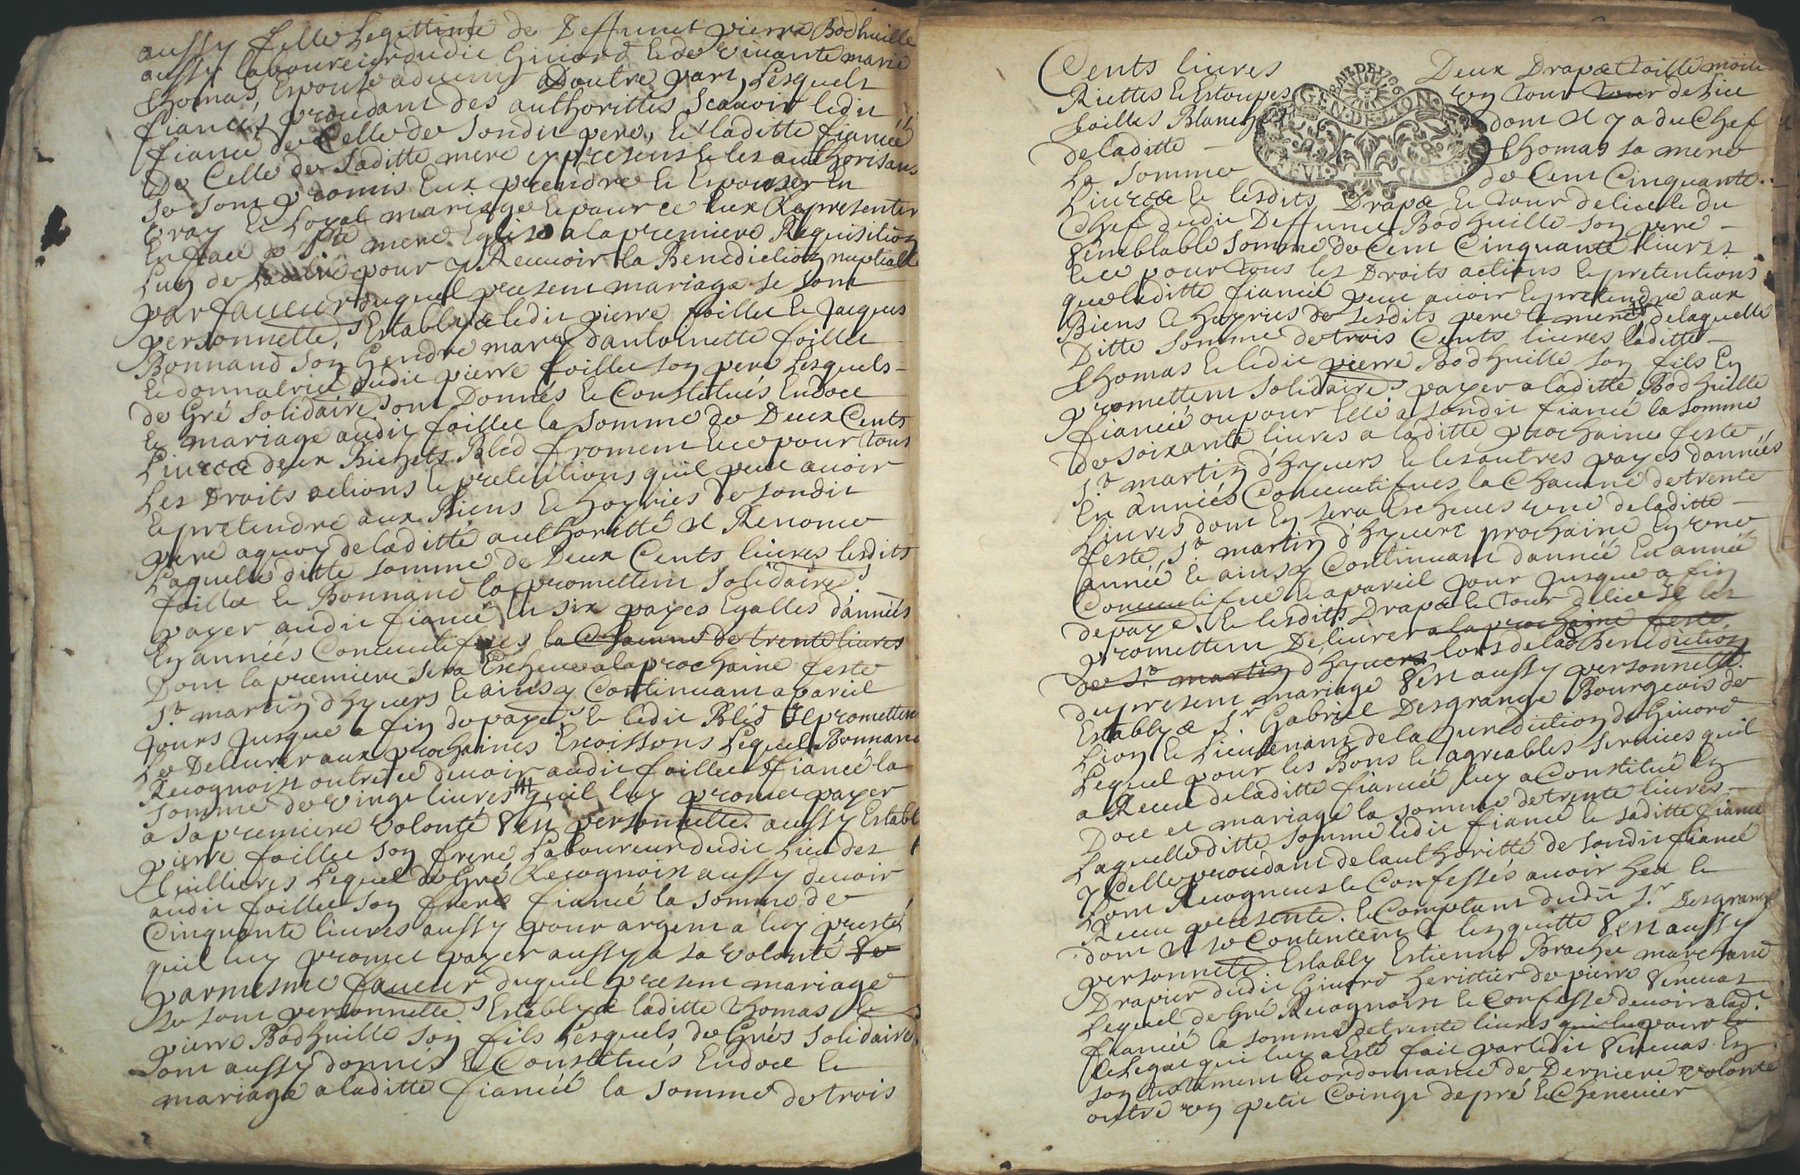 aussy fille Legittime de Deffunct pierre Bodhuille
aussy laboureur dudit Givord & de vivante marie
thomas, Epoux advenir Dautre part, Lesquels
fiancés, procedant des authorittés scavoir ledit
fiancé de Celle de sondit pere, & laditte fiancée
De Celle de saditte mere cy presens & les authorisans
se sont promis Eux prendre & Epouser En
vray & Loyal mariage & pour ce Eux Representer
En face de ste mere Eglise a la premiere Requisition
Lun de Lautre pour y Recevoir la Benediction nuptialle
par faveur duquel present mariage se sont
personnellets Establys ledit pierre foillet & Jacques
Bonnand son Gendre mary dantoinette foillet
& donnatrice dudit pierre foillet son pere Lesquels
de Gré solidairets ont Donnés & Constitués En doct
& mariage audit foillet la somme de Deux Cents
Livres deux Bichets Bled froment & ce pour tous
Les Droits actions & pretentions quil peut avoir
& pretendre aux Biens & hoyries de sondit
pere a quoy de laditte authoritté Il Renonce
Laquelle ditte somme de Deux Cents livres lesdits
foillet & Bonnand la promettent solidairets
payer audit fiancé En six payes Egalles d'années
En années Consecutifves la Chacune de trente livres
Dont la premiere sera Escheue a la prochaine feste
St martin dhyvers & ainsy Continuant a pareil
Jours Jusques a fin de paye, & ledit Bléd Il promettent
Le Delivrer aux prochaines moissons Lequel Bonnand
Recognoist outre ce devoir audit foillet fiancé la
somme de vingt livres quil luy promet payer
a sa premiere volonté Sest personnellet. aussy Estably
pierre foillet son frere Laboureur dudit Lieu des
Lequel de Gré Recognoist aussy devoir
audit foillet son frere fiancé la somme de
Cinquante livres aussy pour argent a luy presté
quil luy promet payer aussy a sa volonté &
par mesme faveur duquel present mariage
se sont personnellets Establys laditte thomas &
pierre Bodhuille son fils Lesquels de Grés solidairets
ont aussy donnés & Constitués En doct &
mariage a laditte fiancée la somme de trois
Cents livres Deux Drapts toille moitié
Riettes & Estoupes un tour tour de Lict
toilles Blanches dont Il y a du Chef
de laditte thomas sa mere
La somme de Cent Cinquante
Livres & lesdits Drapts & tour de lict & du
Chef dudit Deffunct Bodhuille son pere
semblable somme de Cent Cinquante livres
& ce pour tous les Droits actions & pretentions
que laditte fiancée peut avoir & pretendre aux
Biens & hoyries de sesdits pere & mere de laquelle
Ditte somme de trois Cents livres laditte
thomas & ledit pierre Bodhuille son fils En
promettent solidairets payer a laditte Bodhuille
fiancée ou pour Elle a sondit fiancé la somme
de soixante livres a laditte prochaine feste
St martin dhyvers & les autres payes dannées
En années Consecutifves la Chacune de trente
Livres dont En sera Escheues une de laditte
feste St martin d'hyvert prochaine En une
année & ainsy Continuant dannée En année
Consecutifve & a pareil jour jusques a fin
de paye. & lesdits Drapts & tour de lict Il les
promettent Delivrer a la prochaine feste
de St martin dhyvers lors de la Benediction
du present mariage Sest aussy personnellet.
Establys Sr Gabriel Desgrange Bourgeois de
Lion & Lieutenant de la Jurediction de Givord
Lequel pour les Bons & agreables services quil
a Receu de laditte fiancée luy a Constitué En
Doct et mariage la somme de trente livres
Laquelle ditte somme ledit fiancé & laditte fiancée
y Celle procedant de lauthoritté de sondit fiancé
Lont Recogneus & Confessés avoir heu &
Receu presente. & Comptant dudit Sr. Desgrange
dont Il se Contentent & len quitte Sest aussy
personnellet Estably Estienne Brachet marchand
Drapier dudit Givord heritier de pierre
Lequel de Gré Recognoist & Confesse devoir a lad.
fiancée la somme de trente livres qui luy pour le
Le Legat qui luy a Esté fait par ledit En
son testament & ordonnance de Derniere volonté
outre un petit Coingt de pré & Chenevier
GEN. DE LYON